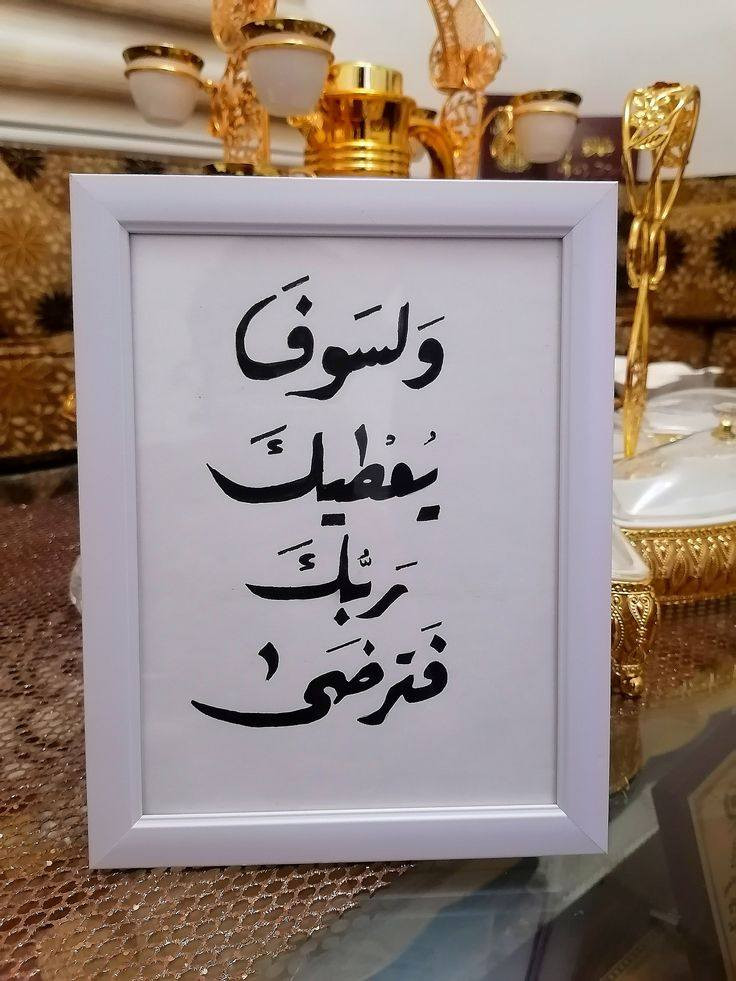 وَلسَوفَ
يُعْطيكَ
رَبُّكَ
فَترضَىٰ